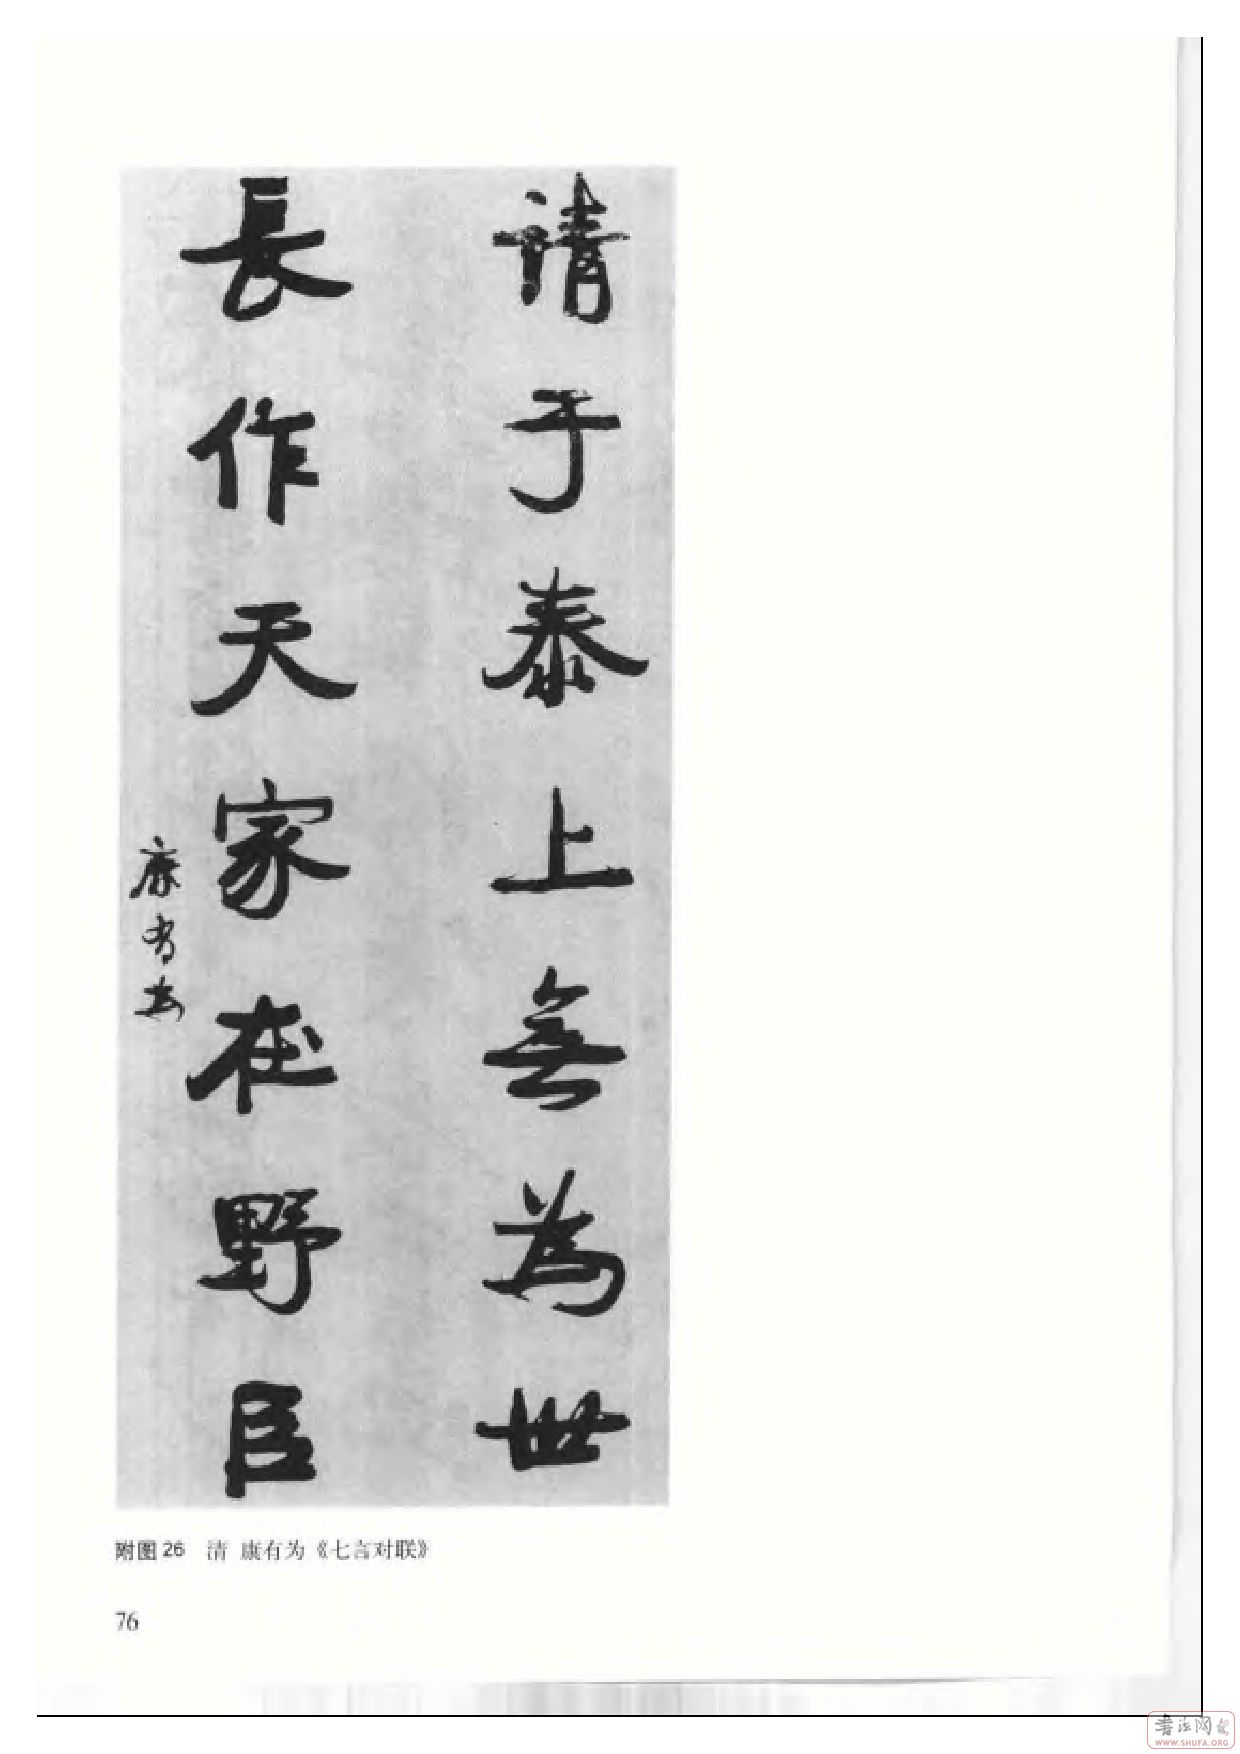 請于泰上無為世
長作天家在野臣
附图26 清 康有为《七言对联》
76
书法网
WWW.SHUFA.ORG